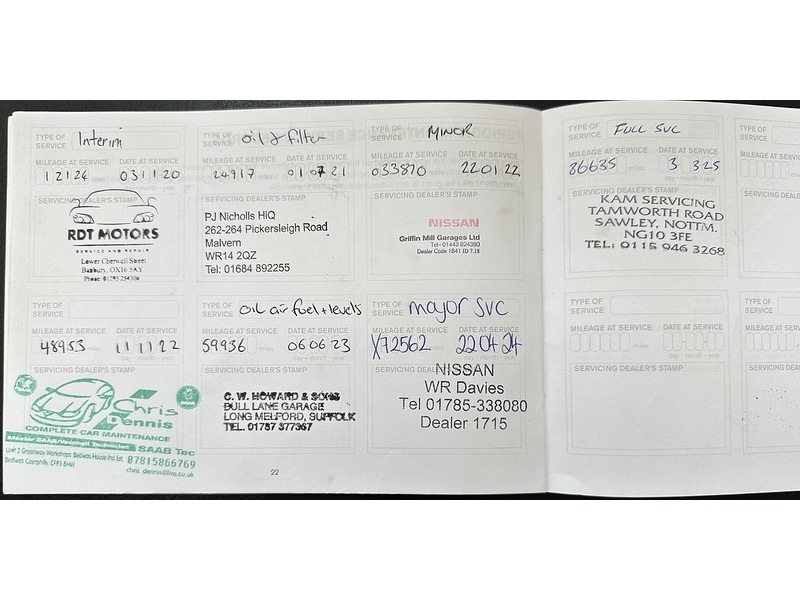 TYPE OF SERVICE Interim
MILEAGE AT SERVICE DATE AT SERVICE
12126 miles 03 11 20
day - month - year
SERVICING DEALER'S STAMP
RDT MOTORS
SERVICE AND REPAIR
Lower Cherwell Street
Banbury, OX16 5AY
Phone: 01295 254300
TYPE OF SERVICE oil & filter
MILEAGE AT SERVICE DATE AT SERVICE
24917 miles 01 07 21
day - month - year
SERVICING DEALER'S STAMP
PJ Nicholls HiQ
262-264 Pickersleigh Road
Malvern
WR14 2QZ
Tel: 01684 892255
TYPE OF SERVICE MINOR
MILEAGE AT SERVICE DATE AT SERVICE
033870 22 01 22
day - month - year
SERVICING DEALER'S STAMP
NISSAN
Griffin Mill Garages Ltd
Tel- 01443 824380
Dealer Code 1841 ID 7.18
TYPE OF SERVICE
MILEAGE AT SERVICE DATE AT SERVICE
48953 miles 11 11 22
day - month - year
SERVICING DEALER'S STAMP
Chris Dennis
COMPLETE CAR MAINTENANCE
Master SAAB/Vauxhall Technician SAAB Tec
Unit 2 Greenway Workshops Bedwas House Ind Est,
Bedwas Caerphilly, CF83 8HW. 07815866769
chris dennis@live.co.uk
TYPE OF SERVICE oil air fuel + levels
MILEAGE AT SERVICE DATE AT SERVICE
59936 miles 06 06 23
day - month - year
SERVICING DEALER'S STAMP
C. W. HOWARD & SONS
BULL LANE GARAGE
LONG MELFORD, SUFFOLK
TEL. 01787 377367
TYPE OF SERVICE major svc
MILEAGE AT SERVICE DATE AT SERVICE
X72562 22 04 24
day - month - year
SERVICING DEALER'S STAMP
NISSAN
WR Davies
Tel 01785-338080
Dealer 1715
22
TYPE OF SERVICE FULL SVC
MILEAGE AT SERVICE DATE AT SERVICE
86635 miles 3 3 25
day - month - year
SERVICING DEALER'S STAMP
KAM SERVICING
TAMWORTH ROAD
SAWLEY, NOTTM.
NG10 3FE
TEL: 0115 946 3268
TYPE OF SERVICE
MILEAGE AT SERVICE DATE AT SERVICE
miles
day - month - year
SERVICING DEALER'S STAMP
TYPE OF SERVICE
MILEAGE AT
SERVICING
TYPE OF SERVICE
MILEAGE AT
SERVICING